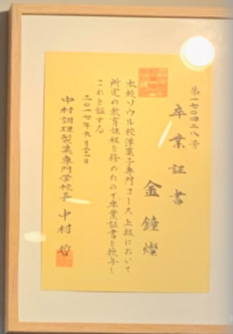 第一七〇四二八号
卒業証書
金鐘燦
本校ソウル校洋菓子専門コース上級において
所定の教育課程を修めたので卒業証書を授与し
これを証する
二〇一七年九月二一日
中村調理製菓専門学校長 中村 哲